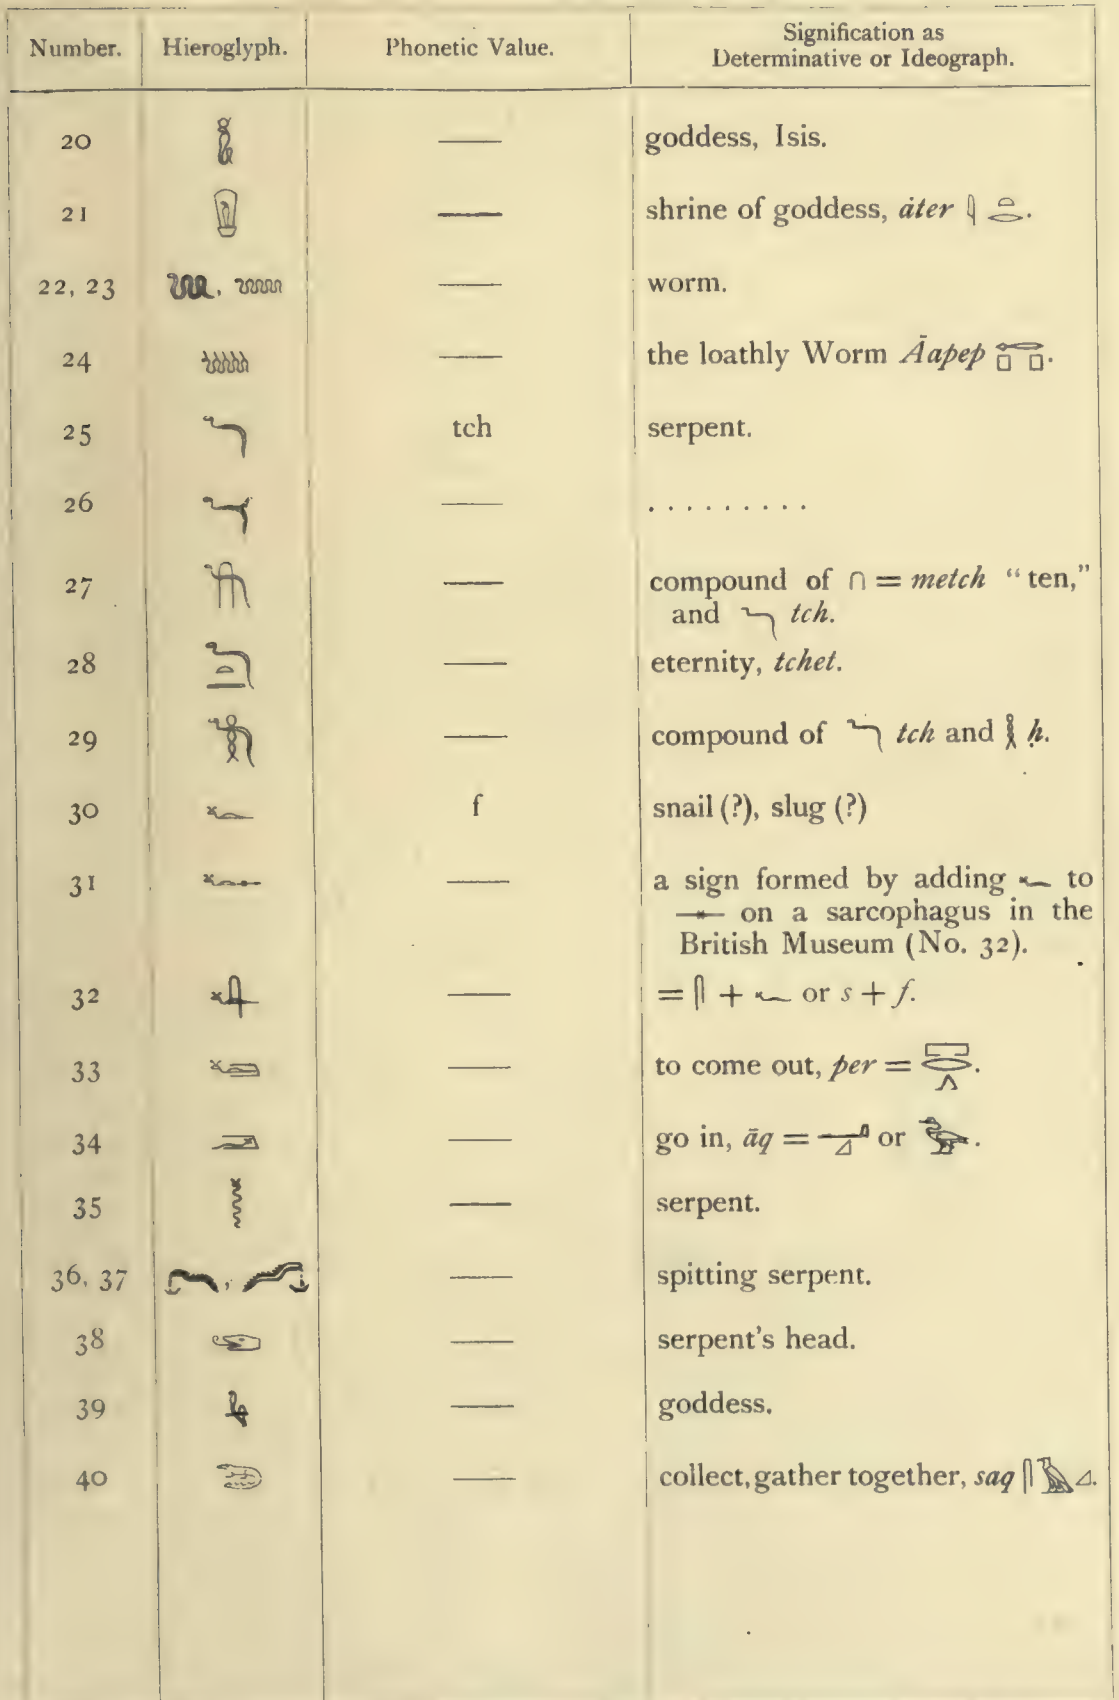 Number. Hieroglyph. Phonetic Value. Signification as
Determinative or Ideograph.
20 𓆘 — goddess, Isis.
21 — shrine of goddess, àter 𓇋𓏏𓂋.
22, 23 , — worm.
24 — the loathly Worm Āapep 𓉻𓊪𓊪.
25 𓆓 tch serpent.
26 — . . . . . . . . .
27 — compound of 𓎆 = metch “ten,”
and 𓆓 tch.
28 — eternity, tchet.
29 — compound of 𓆓 tch and 𓎛 ḥ.
30 𓆑 f snail (?), slug (?)
31 — a sign formed by adding 𓆑 to
𓊃 on a sarcophagus in the
British Museum (No. 32).
32 — = 𓋴 + 𓆑 or s + f.
33 𓆒 — to come out, per = 𓉐𓂋𓂻.
34 — go in, āq = 𓂝𓈎 or 𓅧.
35 — serpent.
36, 37 , — spitting serpent.
38 𓆕 — serpent's head.
39 — goddess.
40 𓆋 — collect, gather together, saq 𓋴𓅄𓈎.